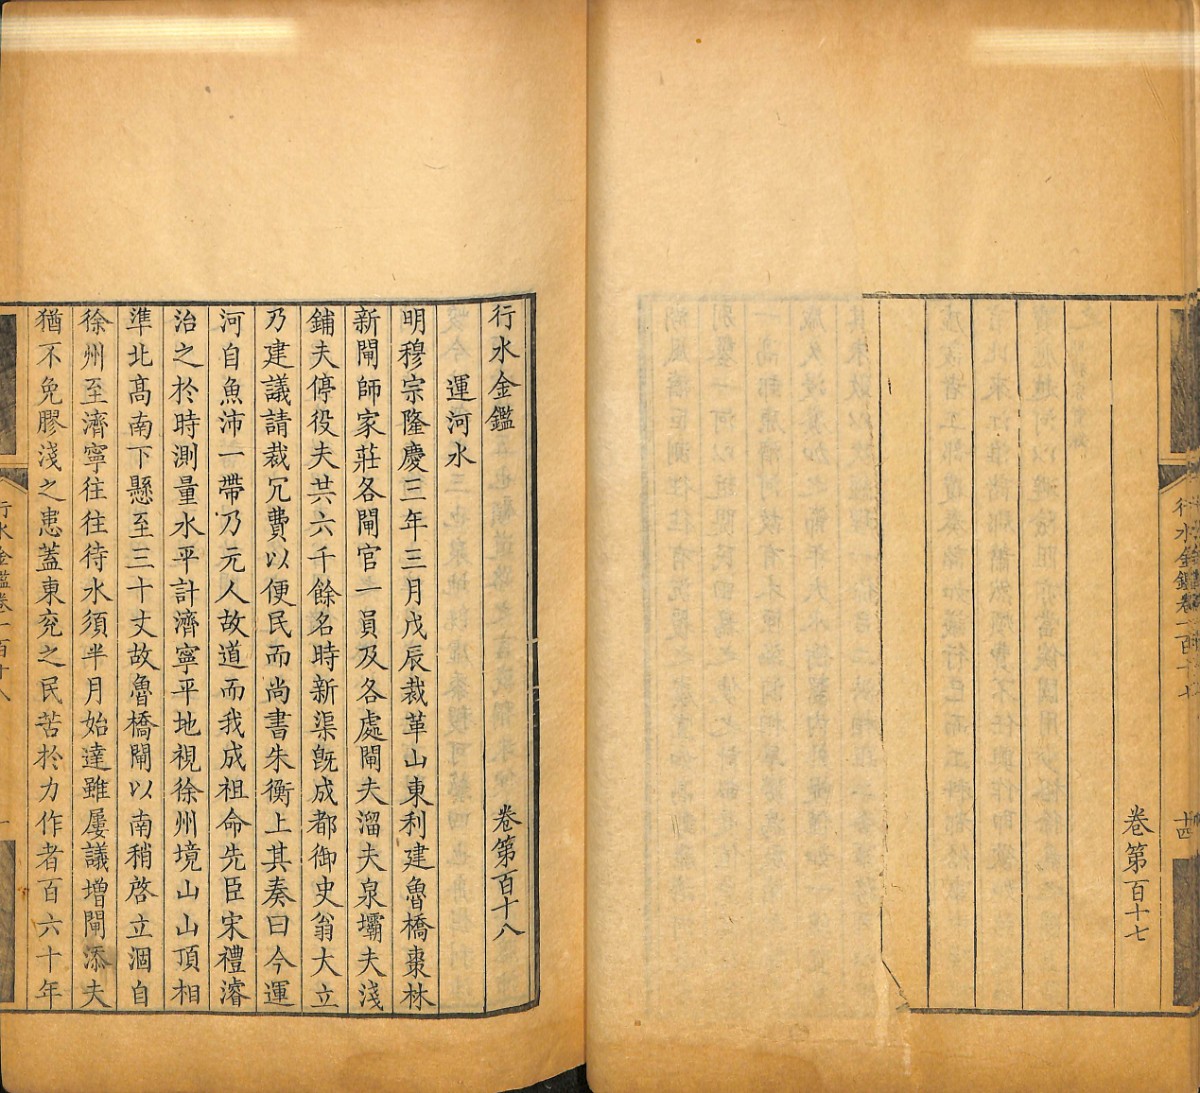 卷第百十七
行水金鑑卷一百十七
十四
行水金鑑 卷第百十八
運河水
明穆宗隆慶三年三月戊辰裁革山東利建魯橋棗林
新閘師家莊各閘官一員及各處閘夫溜夫泉壩夫淺
鋪夫停役夫共六千餘名時新渠旣成都御史翁大立
乃建議請裁冗費以便民而尚書朱衡上其奏曰今運
河自魚沛一帶乃元人故道而我成祖命先臣宋禮濬
治之於時測量水平計濟寧平地視徐州境山山頂相
準北高南下懸至三十丈故魯橋閘以南稍啓立涸自
徐州至濟寧往往待水須半月始達雖屢議增閘添夫
猶不免膠淺之患蓋東兗之民苦於力作者百六十年
行水金鑑卷一百十八
一